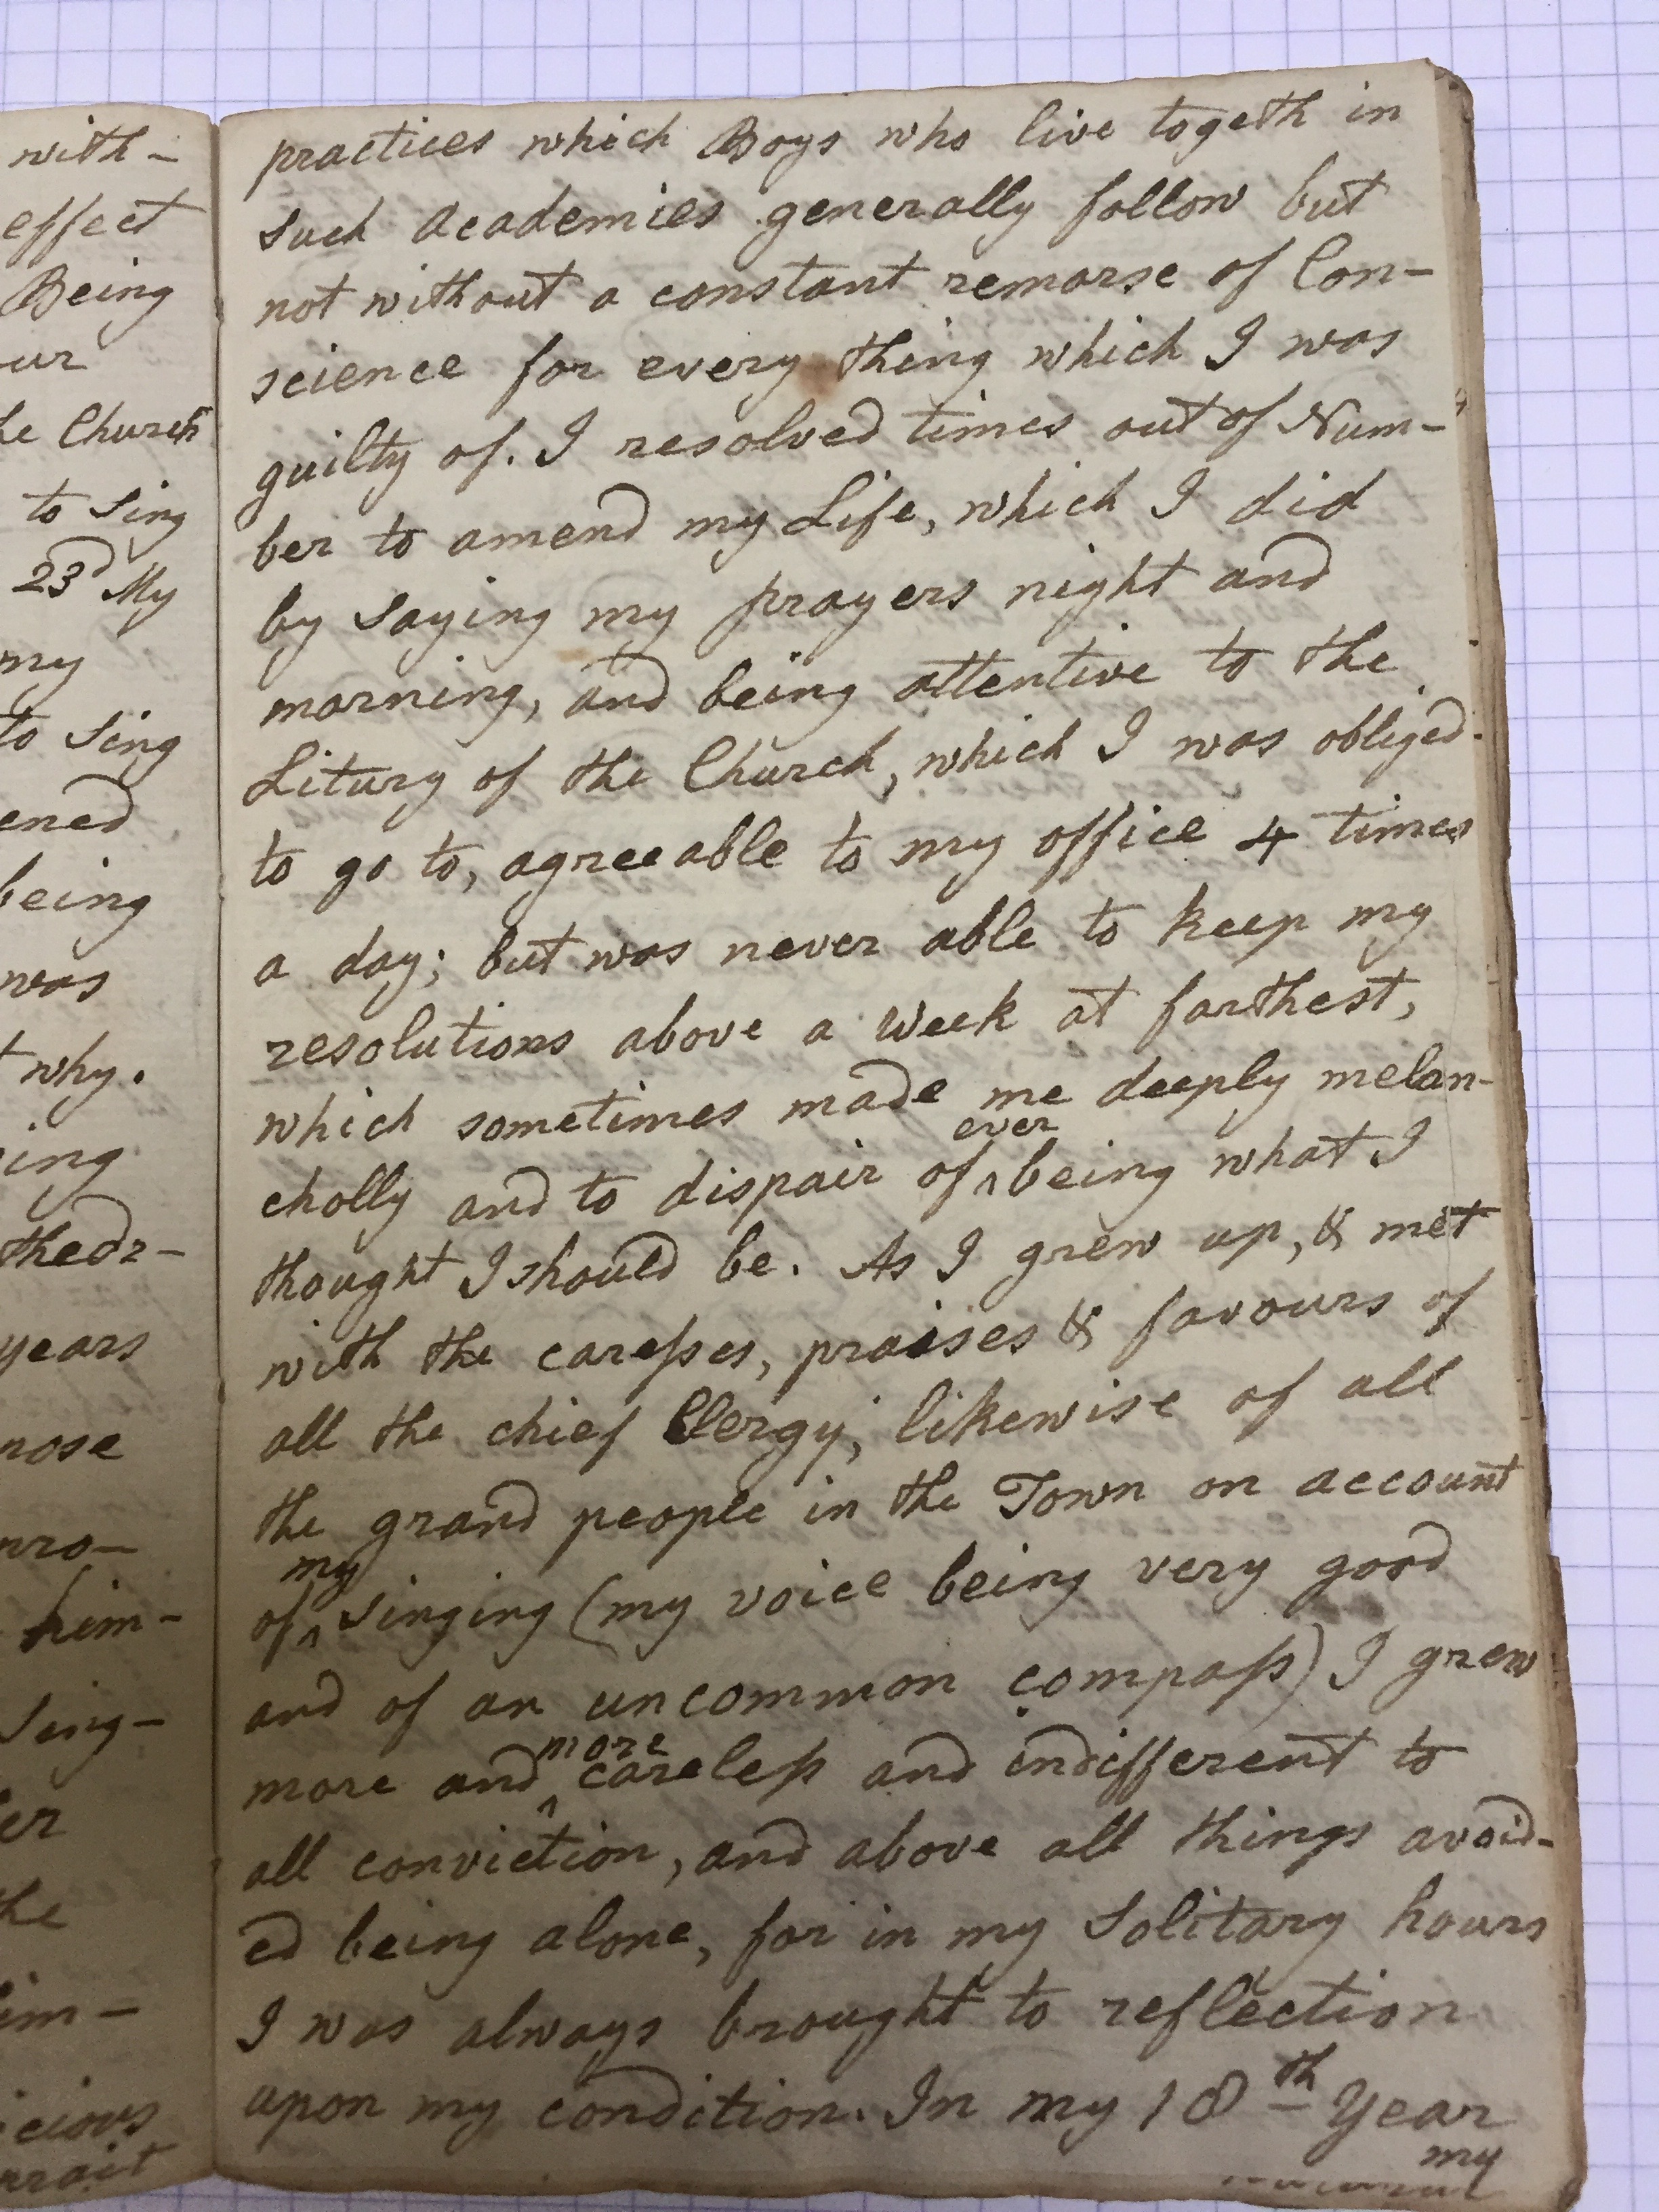 with-
effect
Being
ur
he Church
to sing
23d My
my
to sing
ened
being
was
t why.
ing
thedr-
years
nose
pro-
him-
Sing-
er
the
im-
icious
practices which Boys who live togeth in
such academies generally follow but
not without a constant remorse of Con-
science for every thing which I was
guilty of. I resolved times out of Num-
ber to amend my Life, which I did
by saying my prayers night and
morning, and being attentive to the
Litury of the Church, which I was obliged
to go to, agreeable to my office 4 times
a day; but was never able to keep my
resolutions above a Week at farthest,
which sometimes made me deeply melan-
cholly and to dispair of ^ever being what I
thought I should be. As I grew up, & met
with the caresses, praises & favours of
all the chief Clergy, likewise of all
the grand people in the Town on account
of ^my singing (my voice being very good
and of an uncommon compass) I grew
more and ^more careless and indifferent to
all conviction, and above all things avoid-
ed being alone, for in my solitary hours
I was always brought to reflection
upon my condition. In my 18th Year
my